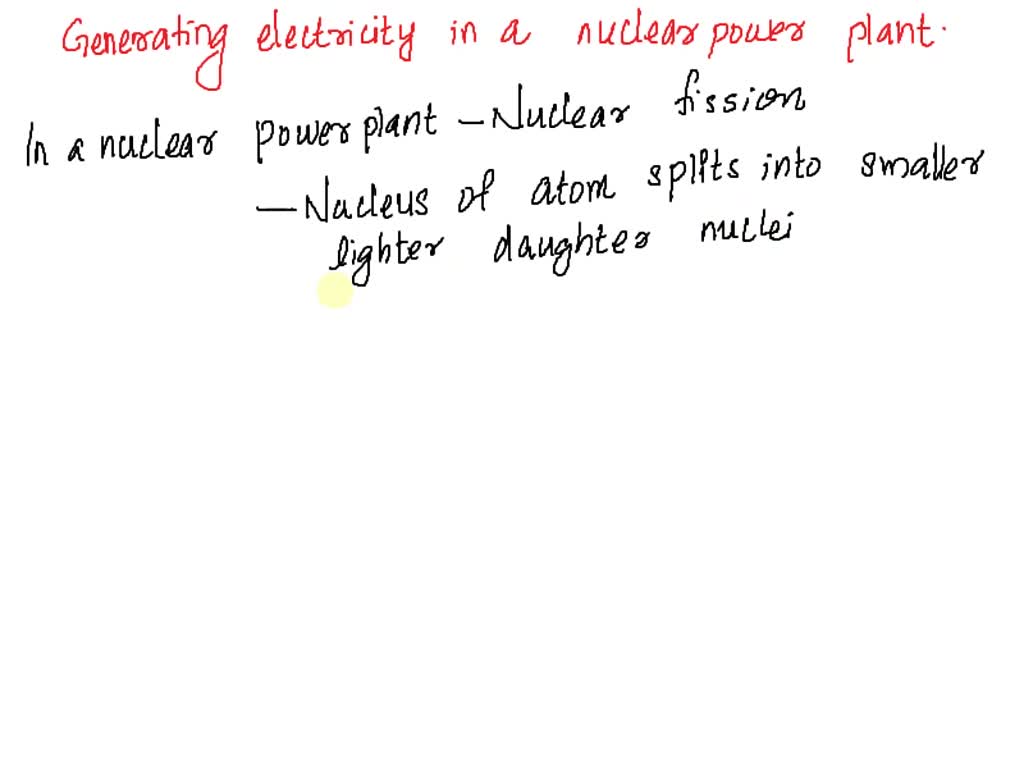 Generating electricity in a nuclear power plant.
In a nuclear power plant - Nuclear fission
- Nucleus of atom splits into smaller
lighter daughter nuclei